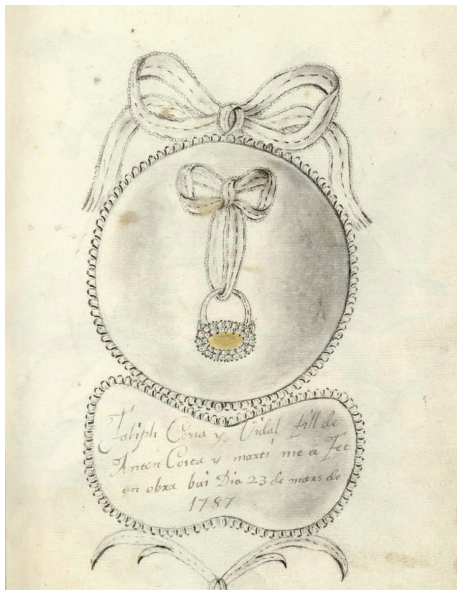 Costa y Vidal fill de
Anton Costa y martí me a Fet
en obra bui Dia 23 de mars de
1787